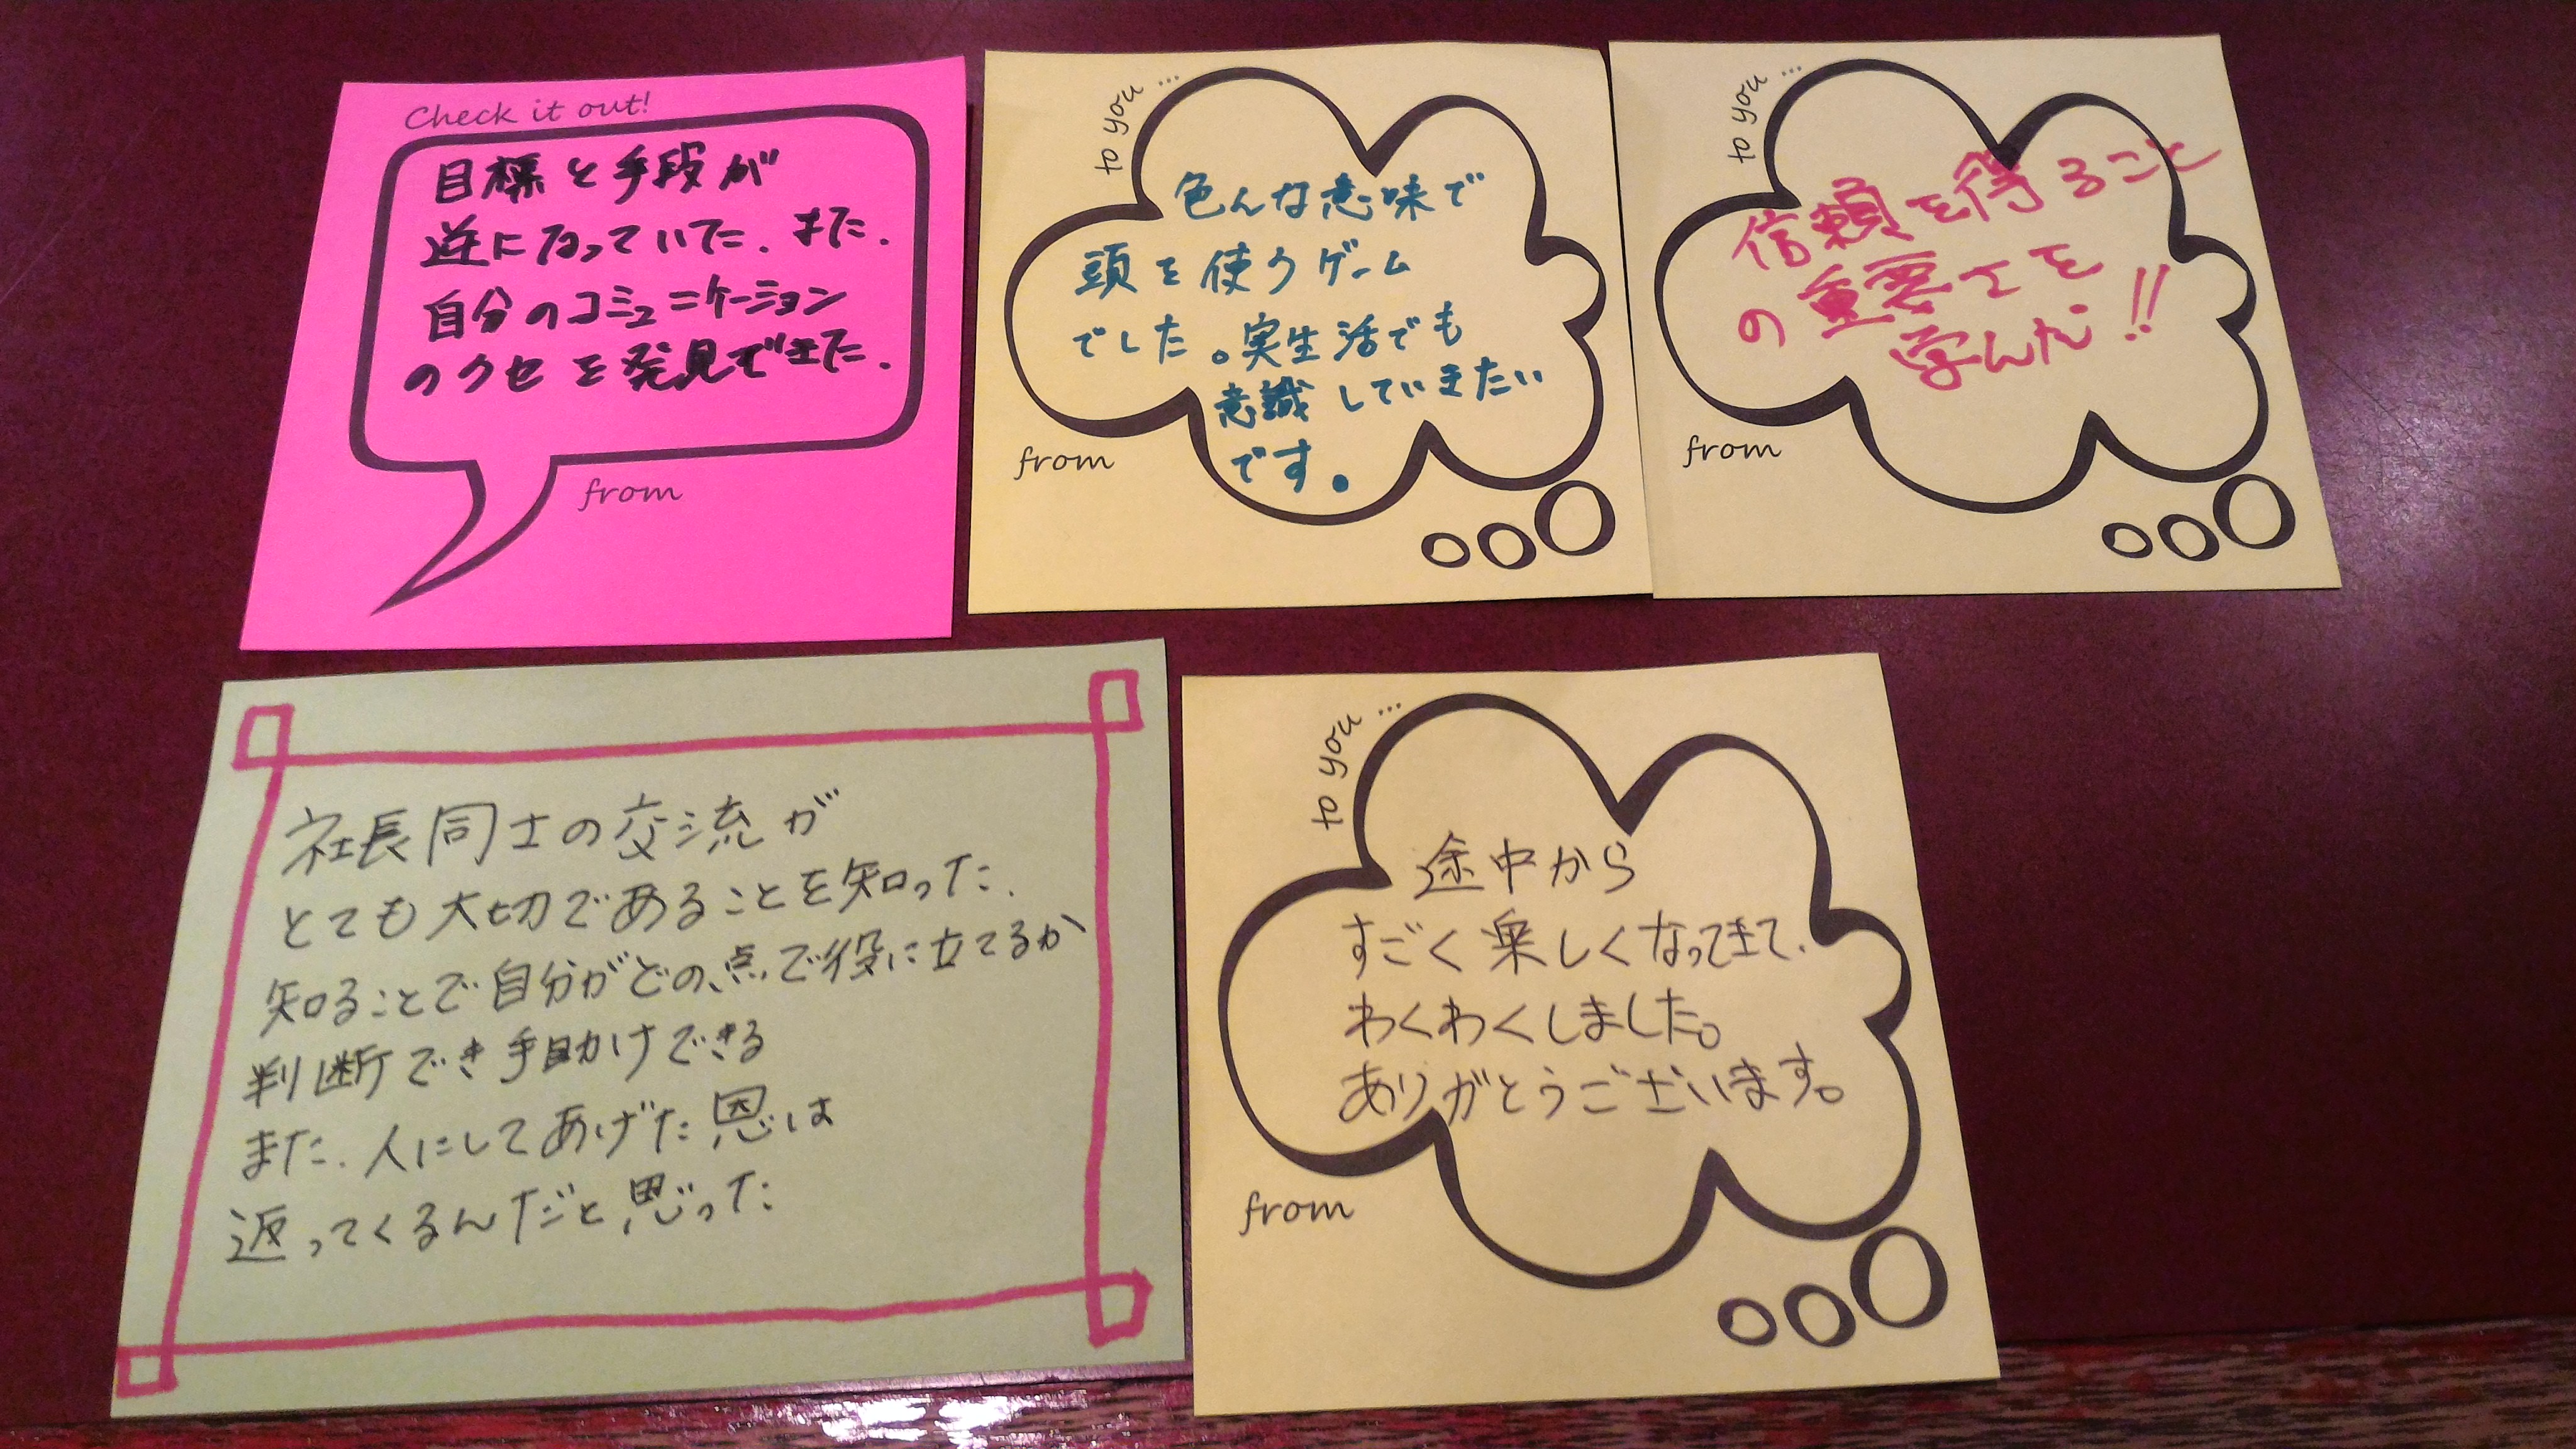 Check it out!
目標と手段が
逆になっていた、また、
自分のコミュニケーション
のクセを発見できた、
from
to you ...
色んな意味で
頭を使うゲーム
でした。実生活でも
意識していきたい
です。
from
to you ...
信頼を得ること
の重要さを
学んだ!!
from
社長同士の交流が
とても大切であることを知った、
知ることで自分がどの点で役に立てるか
判断でき手助けできる
また、人にしてあげた恩は
返ってくるんだと思った
to you ...
途中から
すごく楽しくなってきて、
わくわくしました。
ありがとうございます。
from